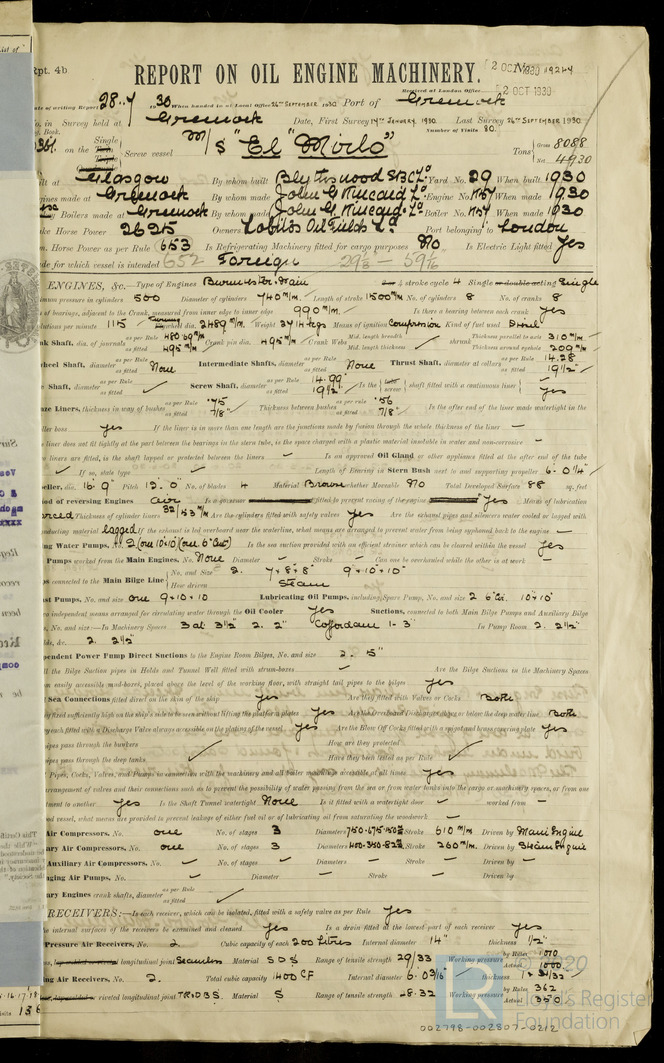 Rpt. 4b
2 OCT 1930
No. 19244
REPORT ON OIL ENGINE MACHINERY.
Received at London Office 2 OCT 1930
ate of writing Report 28..4 1930 When handed in at Local Office 26TH SEPTEMBER 1930 Port of Greenock
o. in Survey held at Greenock Date, First Survey 14TH JANUARY. 1930. Last Survey 26TH SEPTEMBER 1930
g. Book. Number of Visits 80.
on the Single Screw vessel M/S "El "Mirlo" Tons Gross 8088 Net 4930
ilt at Glasgow By whom built Blythswood SBC Lo Yard No. 29 When built 1930
gines made at Greenock By whom made John G Kincaid Lo Engine No. When made 1930
Boilers made at Greenock By whom made John G Kincaid Lo Boiler No. When made 1930
ake Horse Power 2625 Owners Lobitos Oil Fields Ld Port belonging to London
m. Horse Power as per Rule 653 Is Refrigerating Machinery fitted for cargo purposes No Is Electric Light fitted Yes
ade for which vessel is intended 652 Foreign
ENGINES, &c.—Type of Engines Burmeister & Wain 4 stroke cycle 4 Single or double acting Single
imum pressure in cylinders 500 Diameter of cylinders 740 m/m. Length of stroke 1500 m/m No. of cylinders 8 No. of cranks 8
of bearings, adjacent to the Crank, measured from inner edge to inner edge 990 m/m. Is there a bearing between each crank Yes
olutions per minute 115 dia. 2489 m/m. Weight Means of ignition Compression Kind of fuel used Diesel
nk Shaft, dia. of journals as per Rule as fitted 495 m/m Crank pin dia. 495 m/m Crank Webs Mid. length breadth Mid. length thickness shrunk Thickness parallel to axis 310 m/m Thickness around eyehole 209 m/m
wheel Shaft, diameter as per Rule as fitted None Intermediate Shafts, diameter as per Rule as fitted None Thrust Shaft, diameter at collars as per Rule 14.28 as fitted 19 1/2"
e Shaft, diameter as per Rule as fitted Screw Shaft, diameter as per Rule 14.99 as fitted 19 1/2" Is the screw shaft fitted with a continuous liner Yes
nze Liners, thickness in way of bushes as per Rule .75 as fitted 7/8" Thickness between bushes as per rule .56 as fitted 7/8" Is the after end of the liner made watertight in the
ller boss yes If the liner is in more than one length are the junctions made by fusion through the whole thickness of the liner —
e liner does not fit tightly at the part between the bearings in the stern tube, is the space charged with a plastic material insoluble in water and non-corrosive —
o liners are fitted, is the shaft lapped or protected between the liners — Is an approved Oil Gland or other appliance fitted at the after end of the tube
If so, state type Length of Bearing in Stern Bush next to and supporting propeller 6-0 1/4"
eller, dia. 16'9" Pitch 12'.0" No. of blades 4 Material Bronze whether Moveable No Total Developed Surface 88 sq. feet
od of reversing Engines air Is a governor fitted to prevent racing of the engine Yes Means of lubrication
orced Thickness of cylinder liners Are the cylinders fitted with safety valves Yes Are the exhaust pipes and silencers water cooled or lagged with
onducting material lagged If the exhaust is led overboard near the waterline, what means are arranged to prevent water being syphoned back to the engine —
ng Water Pumps, No. 2 Is the sea suction provided with an efficient strainer which can be cleared within the vessel Yes
Pumps worked from the Main Engines, No. None Diameter Stroke Can one be overhauled while the other is at work —
s connected to the Main Bilge Line No. and Size 2. 7+8+8" 9"+10+10" How driven Steam
st Pumps, No. and size one 9+10+10 Lubricating Oil Pumps, including Spare Pump, No. and size 2 10"+10"
o independent means arranged for circulating water through the Oil Cooler Yes Suctions, connected to both Main Bilge Pumps and Auxiliary Bilge
s, No. and size:—In Machinery Spaces 3 at 3 1/2" 2. 2" Cofferdam 1-3" In Pump Room 2. 2 1/2"
lds, &c. 2. 2 1/2"
pendent Power Pump Direct Suctions to the Engine Room Bilges, No. and size 2. 5"
ll the Bilge Suction pipes in Holds and Tunnel Well fitted with strum-boxes Are the Bilge Suctions in the Machinery Spaces
om easily accessible mud-boxes, placed above the level of the working floor, with straight tail pipes to the bilges yes
Sea Connections fitted direct on the skin of the ship Yes Are they fitted with Valves or Cocks Both
ey fixed sufficiently high on the ship's side to be seen without lifting the platform plates Yes Are the Overboard Discharges above or below the deep water line Both
y each fitted with a Discharge Valve always accessible on the plating of the vessel Yes Are the Blow Off Cocks fitted with a spigot and brass covering plate Yes
pipes pass through the bunkers How are they protected
pipes pass through the deep tanks Have they been tested as per Rule
Pipes, Cocks, Valves, and Pumps in connection with the machinery and all boiler mountings accessible at all times yes
arrangement of valves and their connections such as to prevent the possibility of water passing from the sea or from water tanks into the cargo or machinery spaces, or from one
tment to another Yes Is the Shaft Tunnel watertight None Is it fitted with a watertight door worked from —
ood vessel, what means are provided to prevent leakage of either fuel oil or of lubricating oil from saturating the woodwork —
Air Compressors, No. one No. of stages 3 Diameters Stroke 610 m/m Driven by Main Engine
ary Air Compressors, No. one No. of stages 3 Diameters Stroke 260 m/m. Driven by Steam Engine
Auxiliary Air Compressors, No. No. of stages Diameters Stroke Driven by
ging Air Pumps, No. Diameter Stroke Driven by
ary Engines crank shafts, diameter as per Rule as fitted
RECEIVERS:—Is each receiver, which can be isolated, fitted with a safety valve as per Rule Yes
e internal surfaces of the receivers be examined and cleaned Yes Is a drain fitted at the lowest part of each receiver yes
Pressure Air Receivers, No. 2 Cubic capacity of each 200 Litres Internal diameter 14" thickness 1/2"
longitudinal joint Seamless Material S Range of tensile strength 29/33 Working pressure by Rules 1010 Actual 1000
ng Air Receivers, No. 2. Total cubic capacity 1400 CF Internal diameter 6-03/16" thickness
riveted longitudinal joint TR.DBS Material S Range of tensile strength Working pressure by Rules 362 Actual 350
Lloyd's Register
Foundation
002798-002807-0212